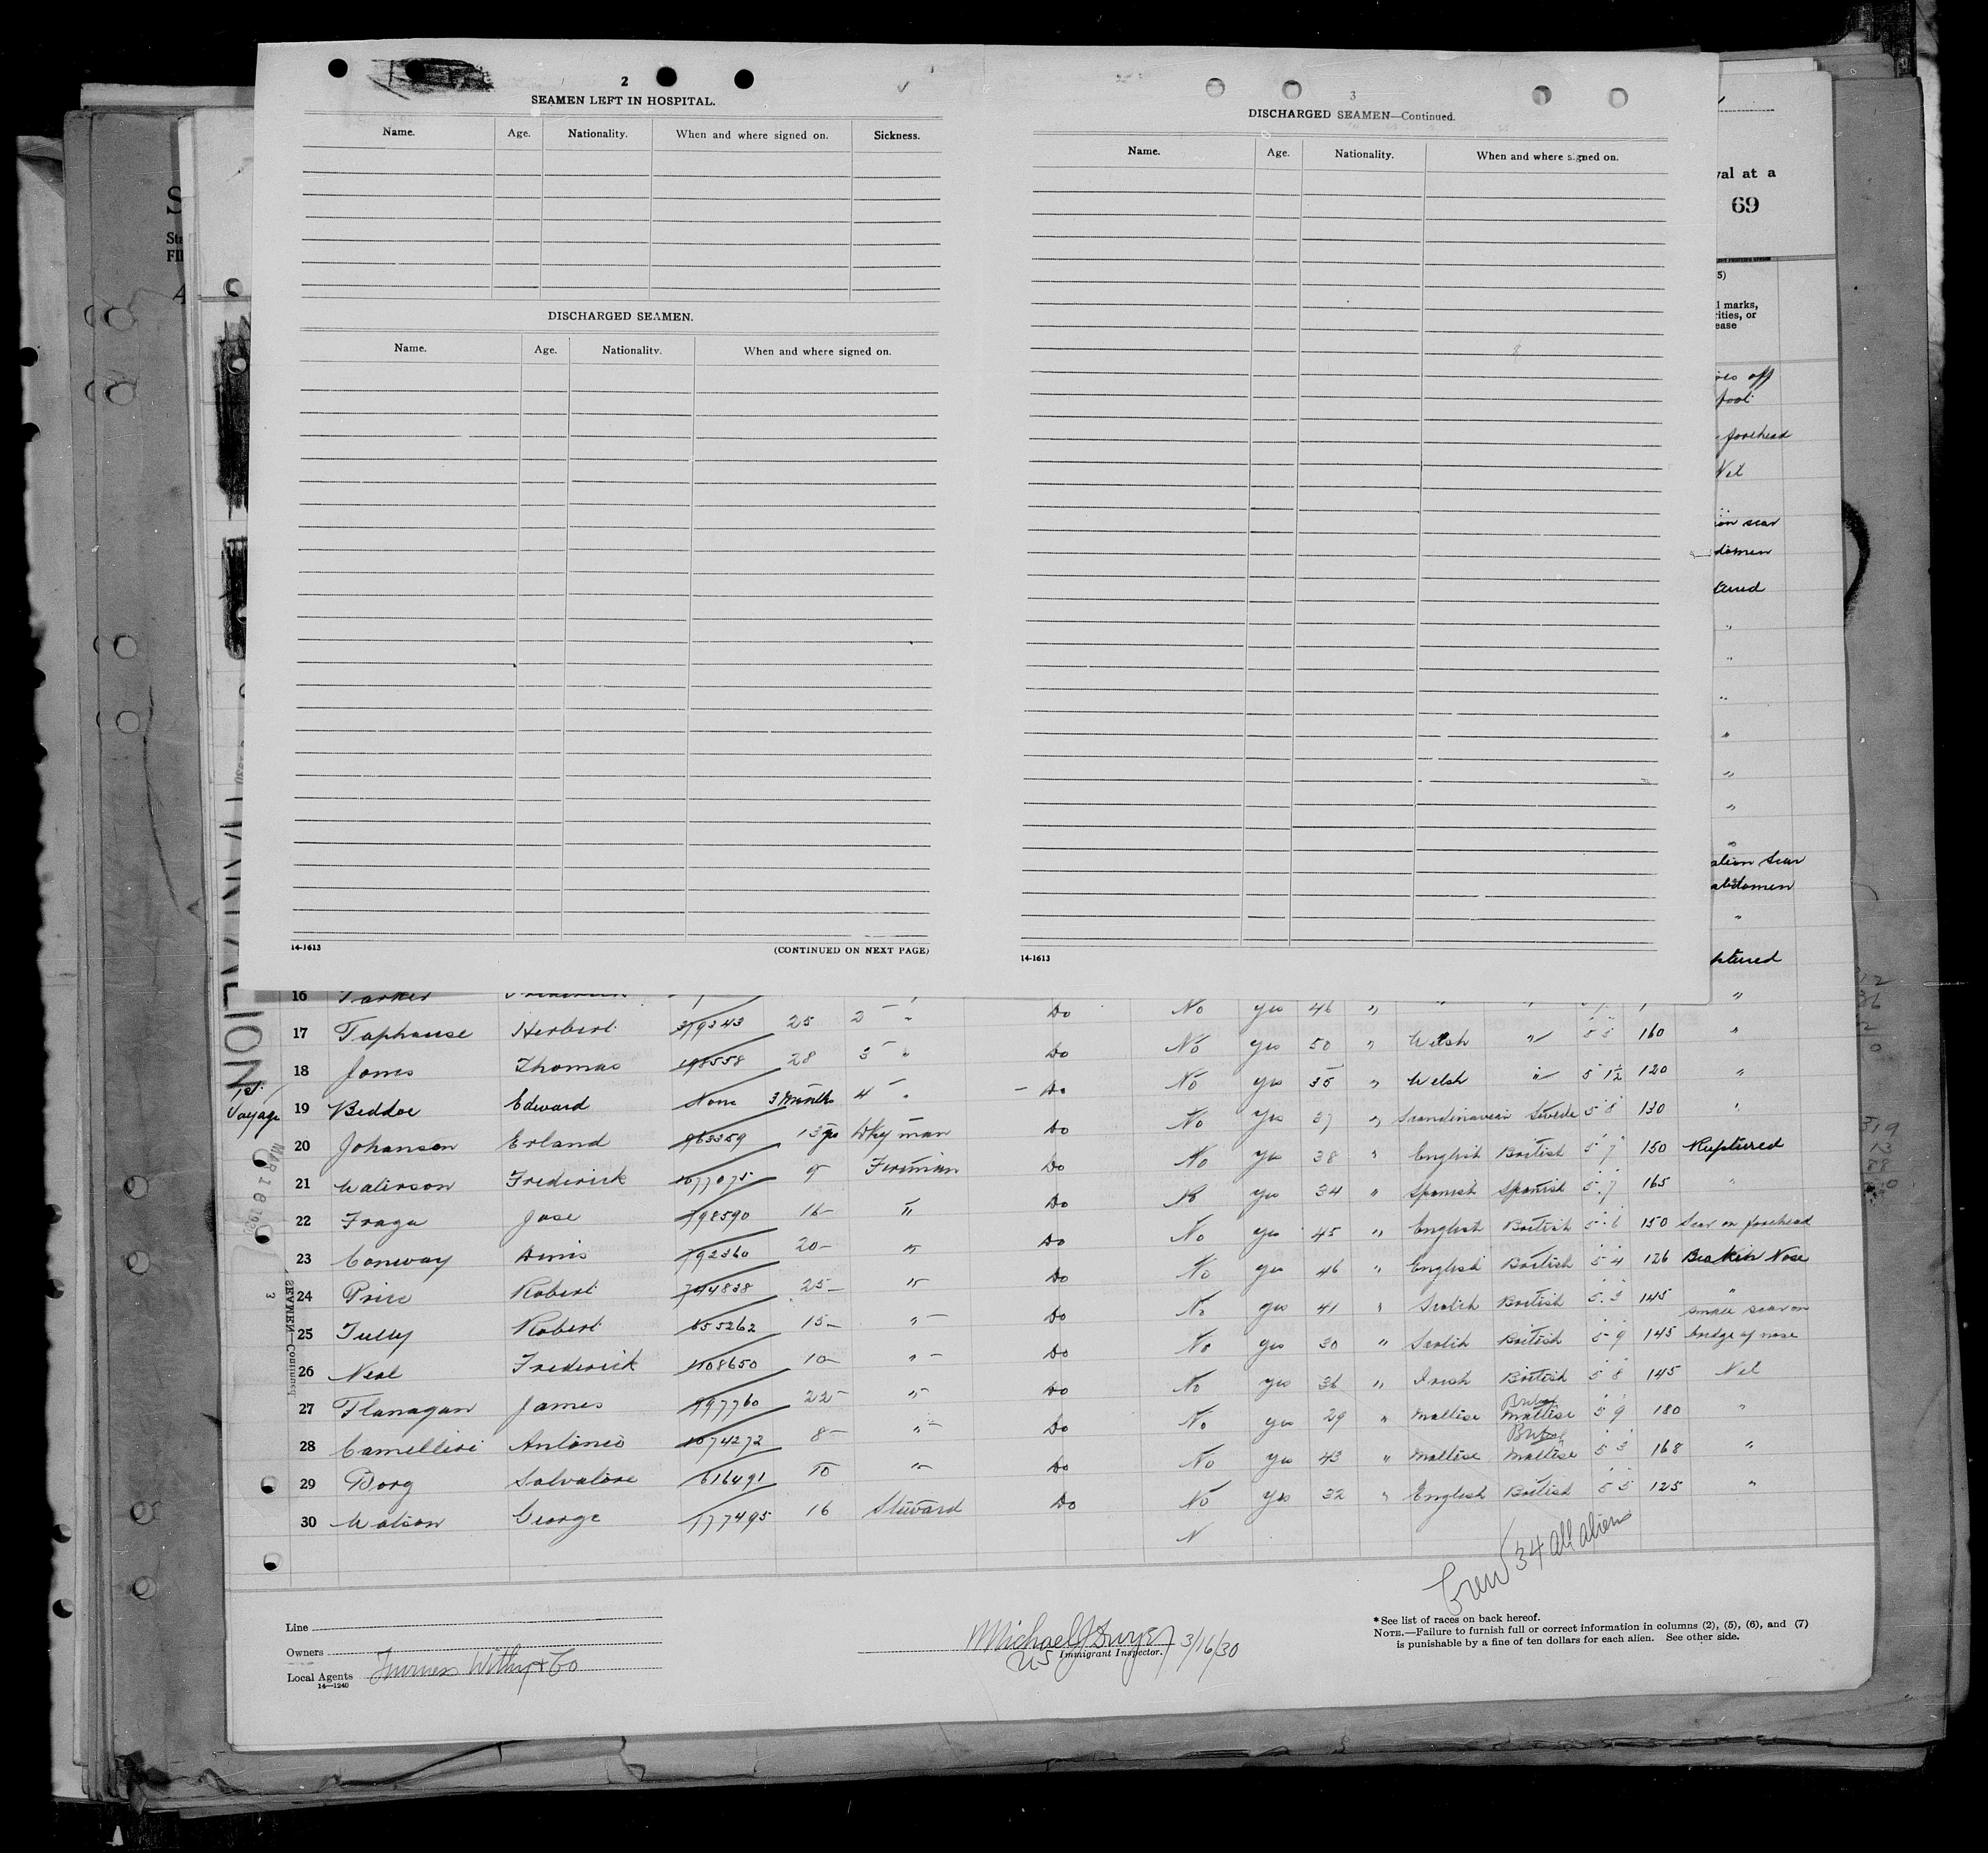 2
SEAMEN LEFT IN HOSPITAL.
Name. Age. Nationality. When and where signed on. Sickness.
DISCHARGED SEAMEN.
Name. Age. Nationality. When and where signed on.
14-1613 (CONTINUED ON NEXT PAGE)
3
DISCHARGED SEAMEN—Continued.
Name. Age. Nationality. When and where signed on.
8
14-1613
val at a
69
5)
l marks,
rities, or
ease
off
foot
forehead
Nil
ion scar
domen
tured
ation Scar
abdomen
ptured
16 Parker Do No yes 46 "
17 Taphouse Herbert 379343 25 2 " Do No yes 50 " Welsh " 5 5 160 "
18 Jones Thomas 198558 28 3 " Do No yes 35 " Welsh " 5 1½ 120 "
1st Voyage 19 Beddoe Edward None 3 Months 4 " Do No yes 37 " Scandinavian Swede 5 8 130 "
20 Johanson Erland 963359 13 yrs Dkyman Do No yes 38 " English British 5 7 150 Ruptured
21 Waterson Frederick 1077075 9 Fireman Do No yes 34 " Spanish Spanish 5 7 165 "
22 Fraga Jose 798590 16 " Do No yes 45 " English British 5 6 150 Scar on forehead
23 Conway Denis 792360 20 " Do No yes 46 " English British 5 4 126 Broken Nose
24 Price Robert 744838 25 " Do No yes 41 " Scotch British 5 3 145 "
small scar on
25 Tully Robert 855262 15 " Do No yes 30 " Scotch British 5 9 145 bridge of nose
26 Neal Frederick 1108650 10 " Do No yes 36 " Irish British 5 8 145 Nil
British
27 Flanagan James 797760 22 " Do No yes 29 " Maltese Maltese 5 9 180 "
British
28 Camelleri Antonio 1074272 8 " Do No yes 43 " Maltese Maltese 5 3 168 "
29 Borg Salvatore 616491 10 " Do No yes 32 " English British 5 5 125 "
30 Watson George 777495 16 Steward Do N
MAR 16 1930
3
SEAMEN—Continued
Crew 34 all aliens
Line
Owners
Local Agents Furness Withy & Co
14—1240
Michael J Dwyer 3/16/30
US Immigrant Inspector.
*See list of races on back hereof.
NOTE.—Failure to furnish full or correct information in columns (2), (5), (6), and (7)
is punishable by a fine of ten dollars for each alien. See other side.